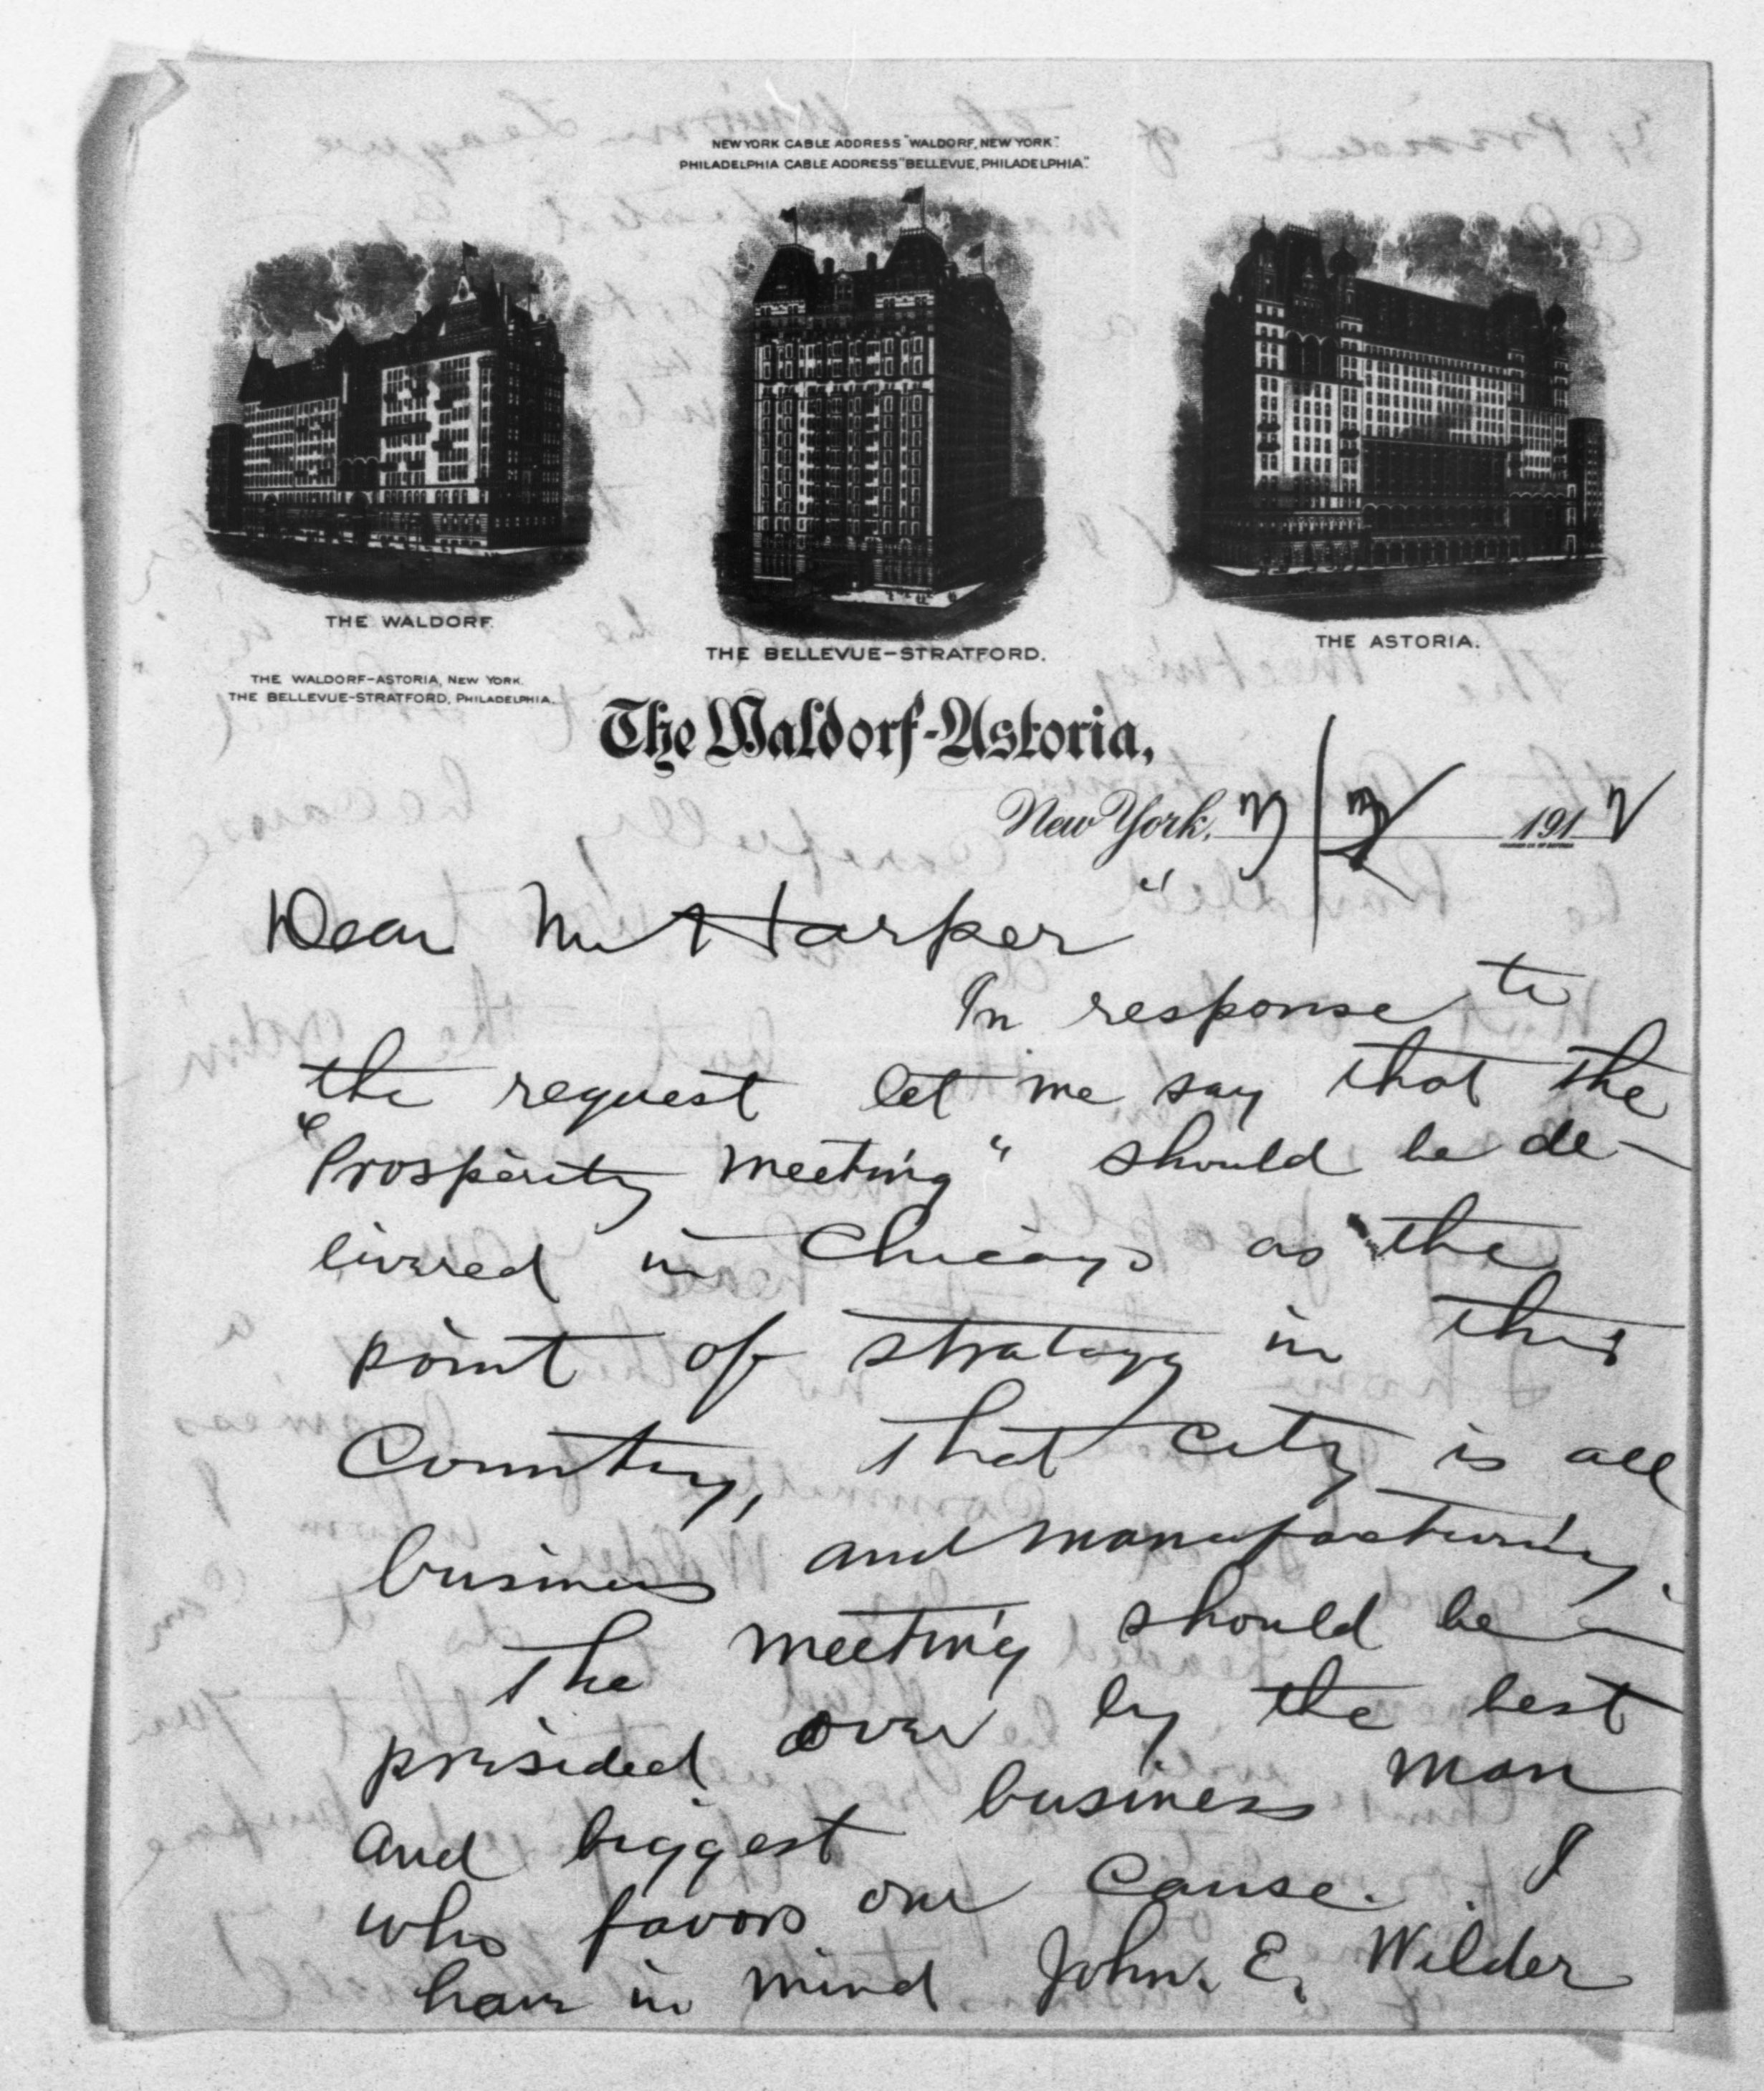 NEW YORK CABLE ADDRESS "WALDORF, NEW YORK."
PHILADELPHIA CABLE ADDRESS "BELLEVUE, PHILADELPHIA."
THE WALDORF.
THE BELLEVUE-STRATFORD.
THE ASTORIA.
THE WALDORF-ASTORIA, NEW YORK.
THE BELLEVUE-STRATFORD, PHILADELPHIA.
The Waldorf-Astoria,
New York, 191
Dear Mr Harper
In response to
the request let me say that the
"Prosperity meeting" should be de-
livered in Chicago as the
point of strategy in this
Country, that city is all
business and manufacturing.
The meeting should be
presided over by the best
and biggest business man
who favors our cause. I
have in mind John. E. Wilder